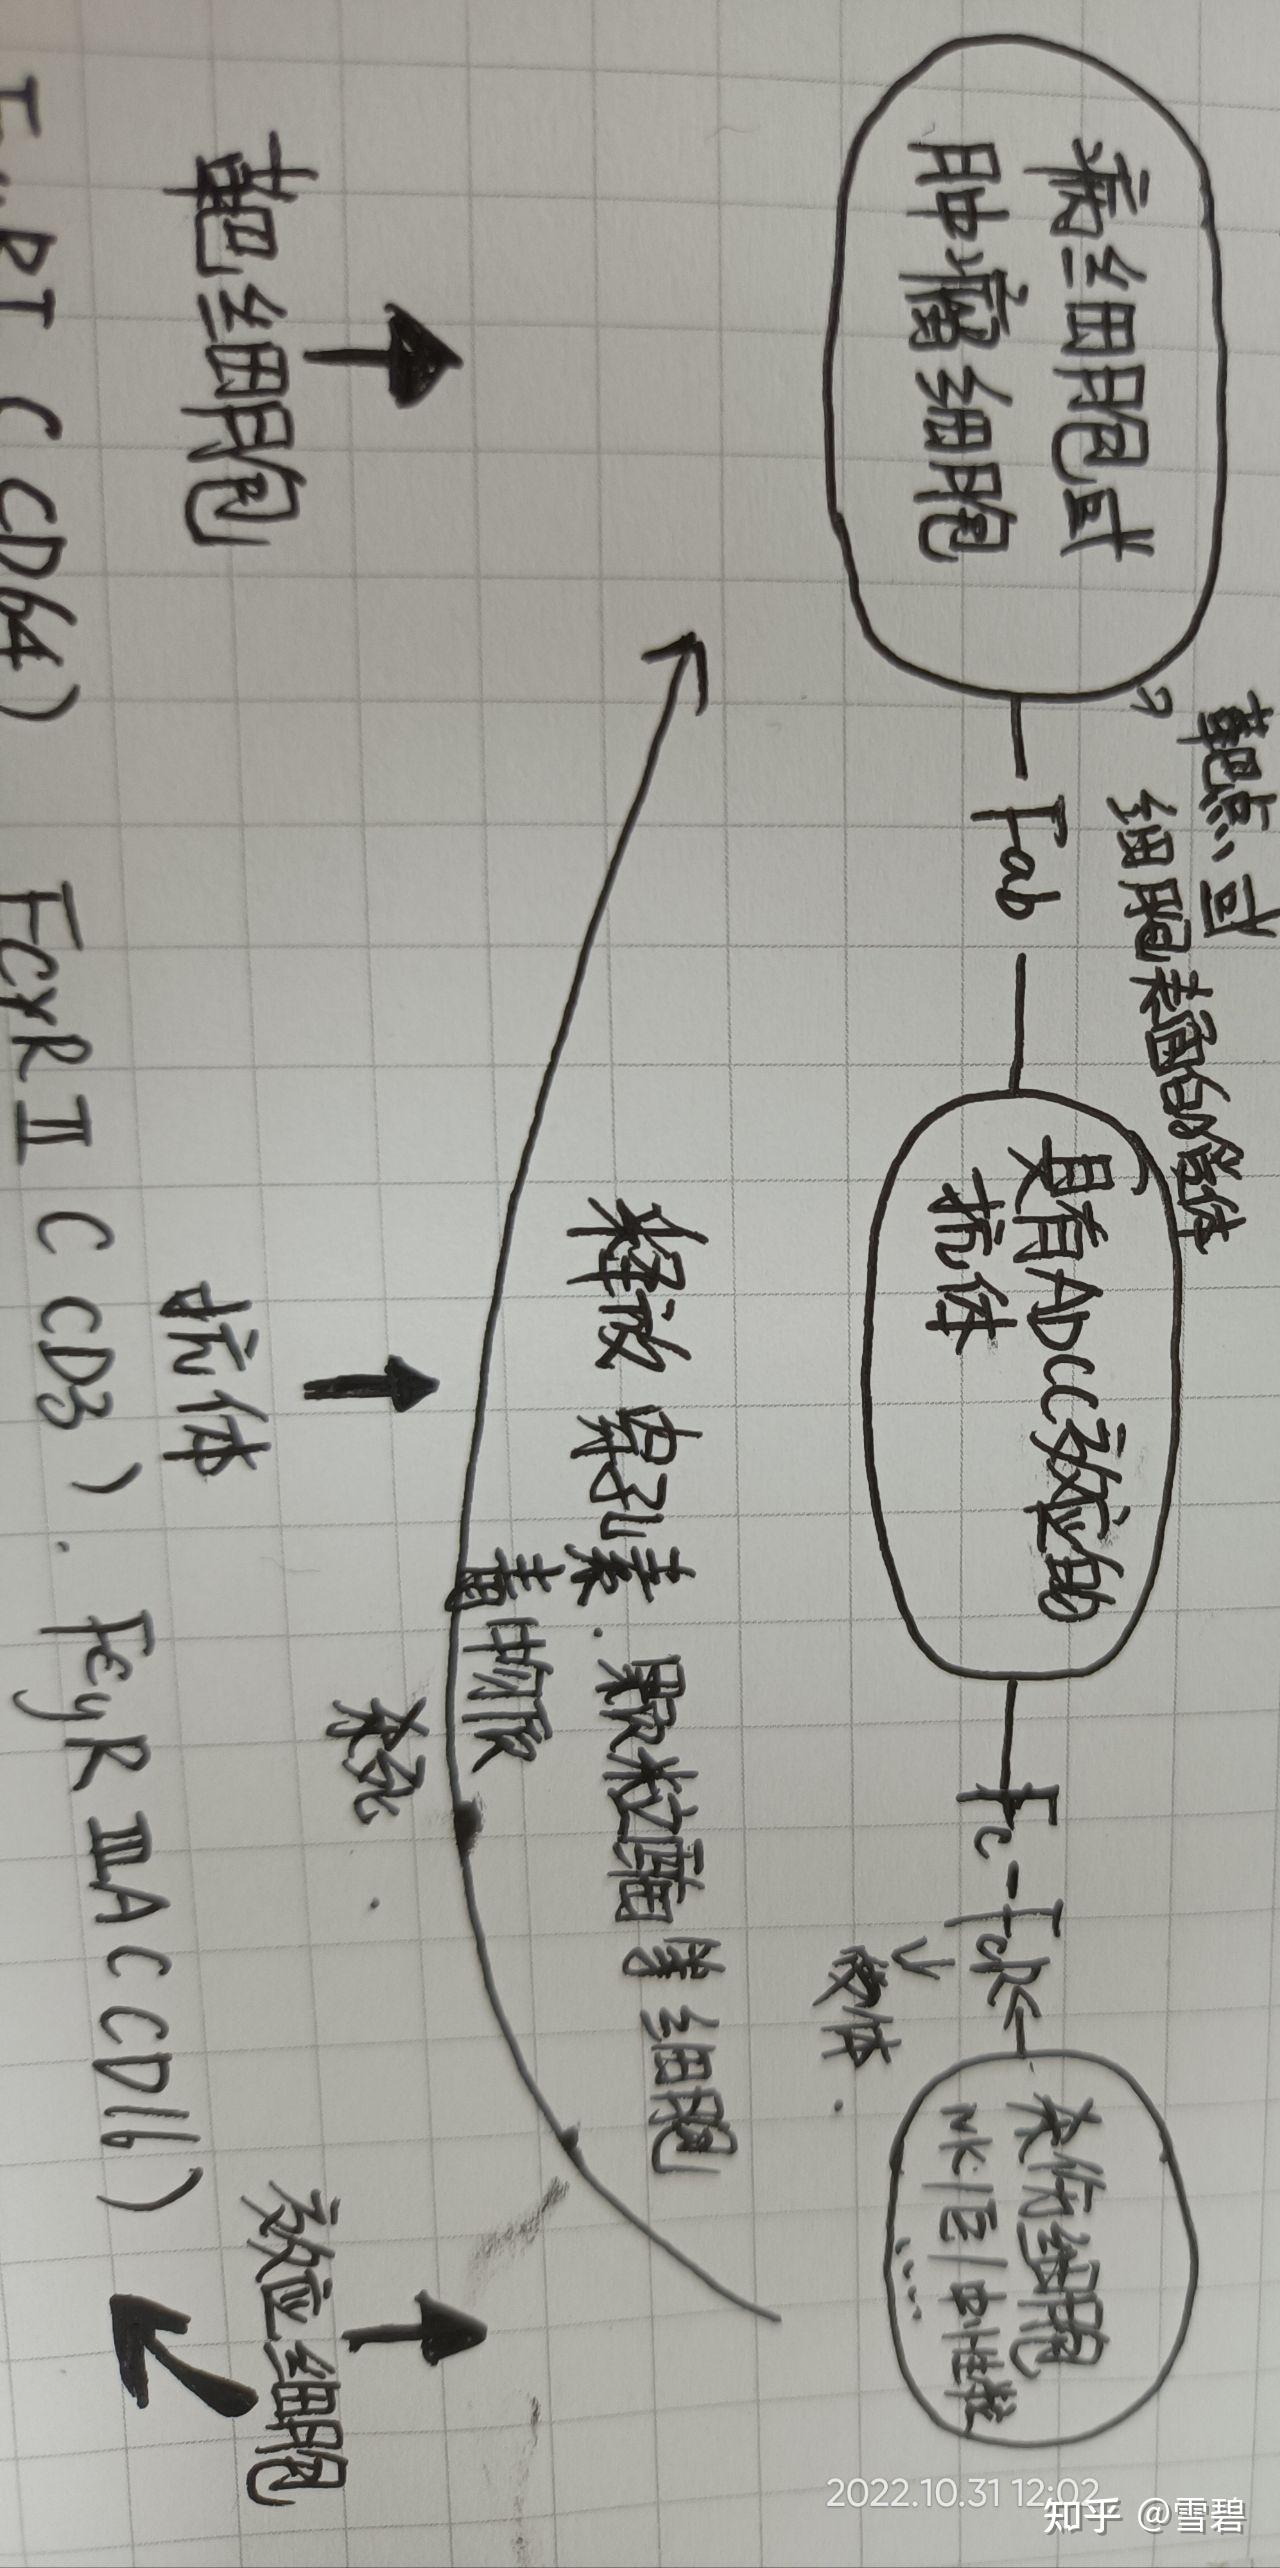 靶点或
细胞表面的受体
病细胞或
肿瘤细胞
Fab
具有ADCC效应的
抗体
Fc-FcR
受体.
杀伤细胞
NK/巨/中性粒
……
释放 穿孔素.颗粒酶等细胞
毒物质
杀死.
靶细胞
抗体
效应细胞
CD64) FcγRⅡ C CD3). FcγRⅢA C CD16)
2022.10.31 12:02
知乎 @雪碧